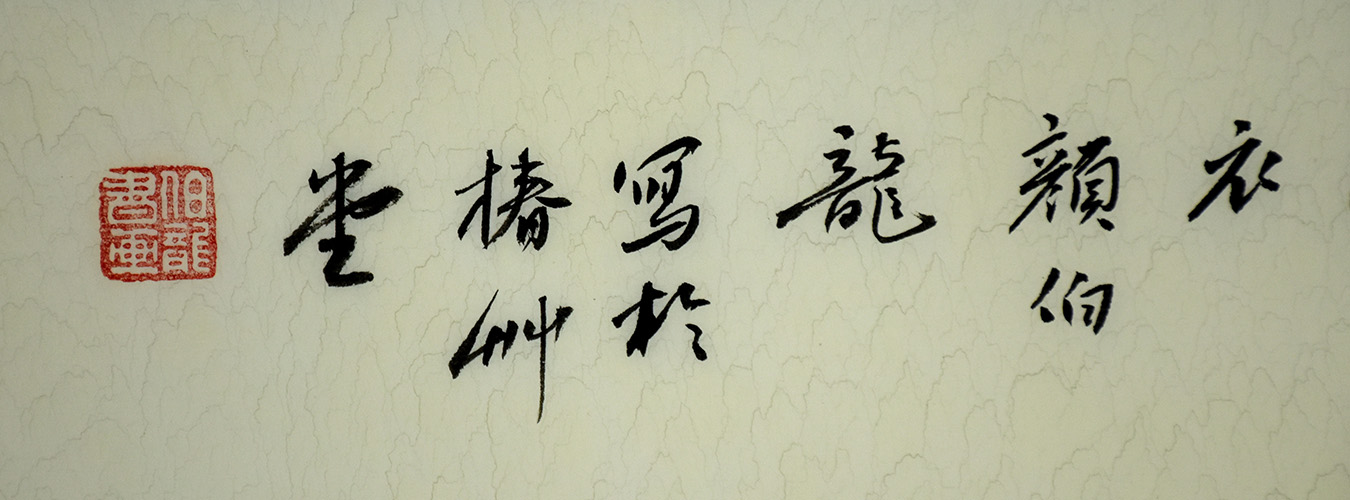 衣
顏伯
龍
寫於
椿艸
堂
伯龍
書畫